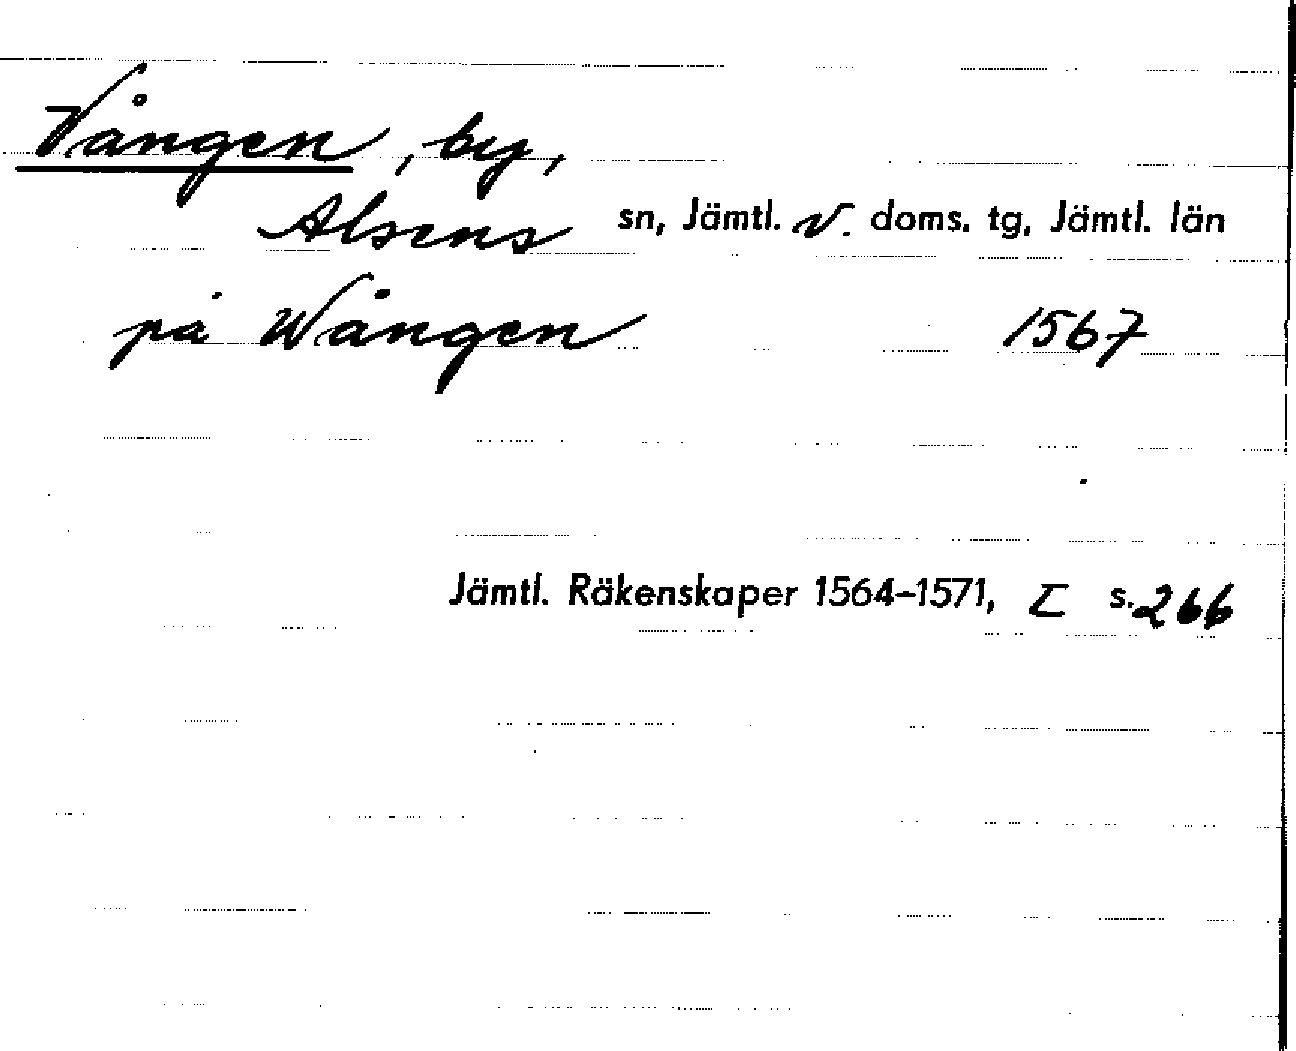 Vången, by,
Alsens sn, Jämtl. v. doms. tg, Jämtl. län
på Wången 1567
Jämtl. Räkenskaper 1564–1571, I s. 266